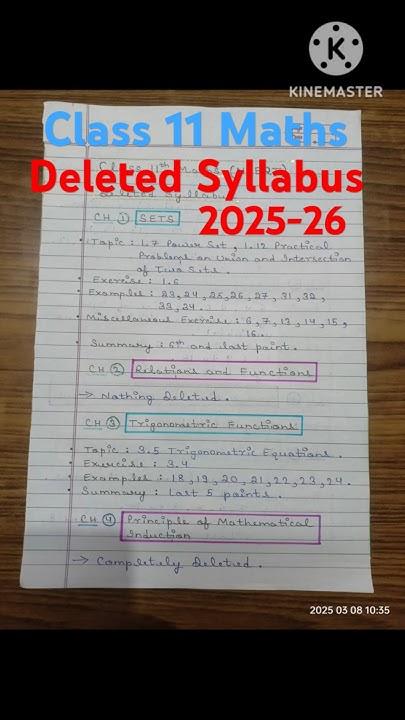 KINEMASTER
Class 11 Maths
Deleted Syllabus
2025-26
CH ① SETS
• Topic : 1.7 Power Set , 1.12 Practical
Problems on Union and Intersection
of Two Sets .
• Exercise : 1.6
• Examples : 23, 24, 25, 26, 27, 31, 32,
33, 34.
• Miscellaneous Exercise : 6, 7, 13, 14, 15,
16.
• Summary : 6th and last point.
CH ② Relations and Functions
→ Nothing Deleted .
CH ③ Trigonometric Functions
• Topic : 3.5 Trigonometric Equations .
• Exercise : 3.4
• Examples : 18, 19, 20, 21, 22, 23, 24.
• Summary : last 5 points .
CH ④ Principle of Mathematical
Induction
→ Completely Deleted .
2025 03 08 10:35